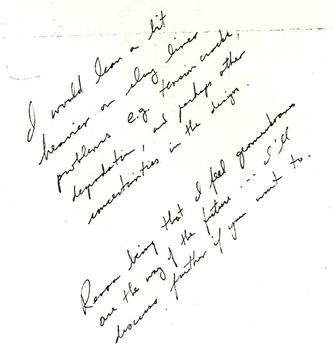 I would lean a bit
heavier on clay liner
problems e.g. tension cracks,
degradation, and perhaps other
uncertainties in the design.
Reason being that I feel geomembranes
are the way of the future ... I'll
discuss further if you want to.